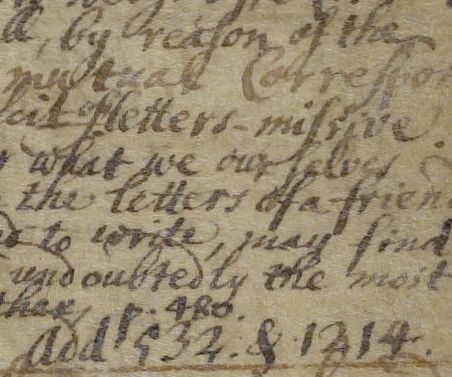 by reason of the
mutual Correspon
of letters-missive.
what we our selves
the letters of a friend
to write, may find
undoubtedly the most
p. 480.
Add p 532. & 1214.